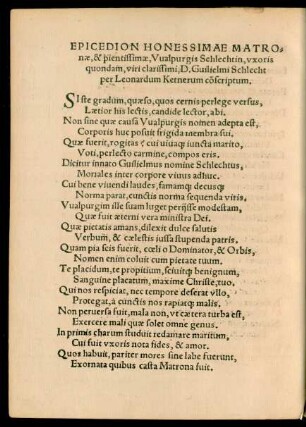 EPICEDION HONESSIMAE MATRO-
næ, & pientissimæ, Vualpurgis Schlechtin, vxoris
quondam, viri clarissimi, D. Guilielmi Schlecht
per Leonardum Ketnerum cõscriptum.
SIste gradum, quæso, quos cernis perlege versus,
Lætior his lectis, candide lector, abi.
Non sine quæ causa Vualpurgis nomen adepta est,
Corporis huc posuit frigida membra sui.
Quæ fuerit, rogitas? cui uiuaq; iuncta marito,
Voti, perlecto carmine, compos eris.
Dicitur innato Guilielmus nomine Schlechtus,
Mortales inter corpore viuus adhuc.
Cui bene viuendi laudes, famamq; decusq;
Norma parat, cunctis norma sequenda viris.
Vualpurgim ille suam luget perijsse modestam,
Quæ fuit æterni vera ministra Dei.
Quæ pietatis amans, dilexit dulce salutis
Verbum, & cælestis iussa stupenda patris.
Quam pia scis fuerit, cœli o Dominator, & Orbis,
Nomen enim coluit cum pietate tuum.
Te placidum, te propitium, sciuitq; benignum,
Sanguine placatum, maxime Christe, tuo.
Qui nos respiciat, nec tempore deserat vllo,
Protegat, à cunctis nos rapiatq; malis.
Non peruersa fuit, mala non, vt cætera turba est,
Exercere mali quæ solet omne genus.
In primis charum studuit redamare maritum,
Cui fuit vxoris nota fides, & amor.
Quos habuit, pariter mores sine labe fuerunt,
Exornata quibus casta Matrona fuit.